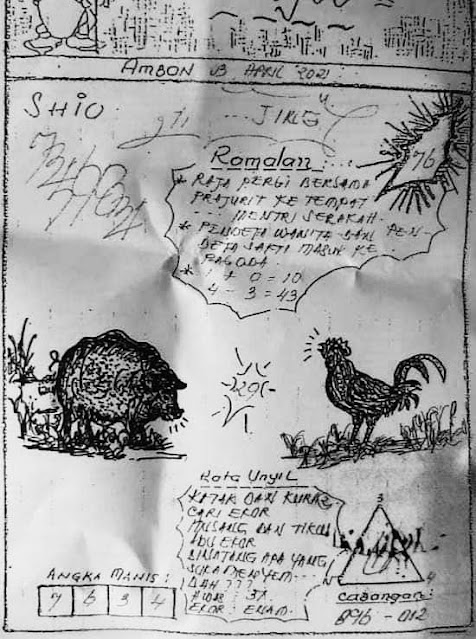 AMBON 03 APRIL 2021
SHIO
JING
Ramalan
76
* RAJA PERGI BERSAMA
PRAJURIT KE TEMPAT
MENTRI SERAKAH
* PENDETA WANITA DAN PEN-
DETA SAKTI MASUK KE
PAGODA
* 1 + 0 = 10
4 - 3 = 43
Kata Unyil
KATAK DAN KURA2
CARI EKOR
MUSANG DAN TIKUS
ADU EKOR
BINATANG APA YANG
SUKA MENYEM-
BAH ???
EKOR : ENAM
3
4
ANGKA MANIS :
7 6 3 4
Cabangan:
896 - 012